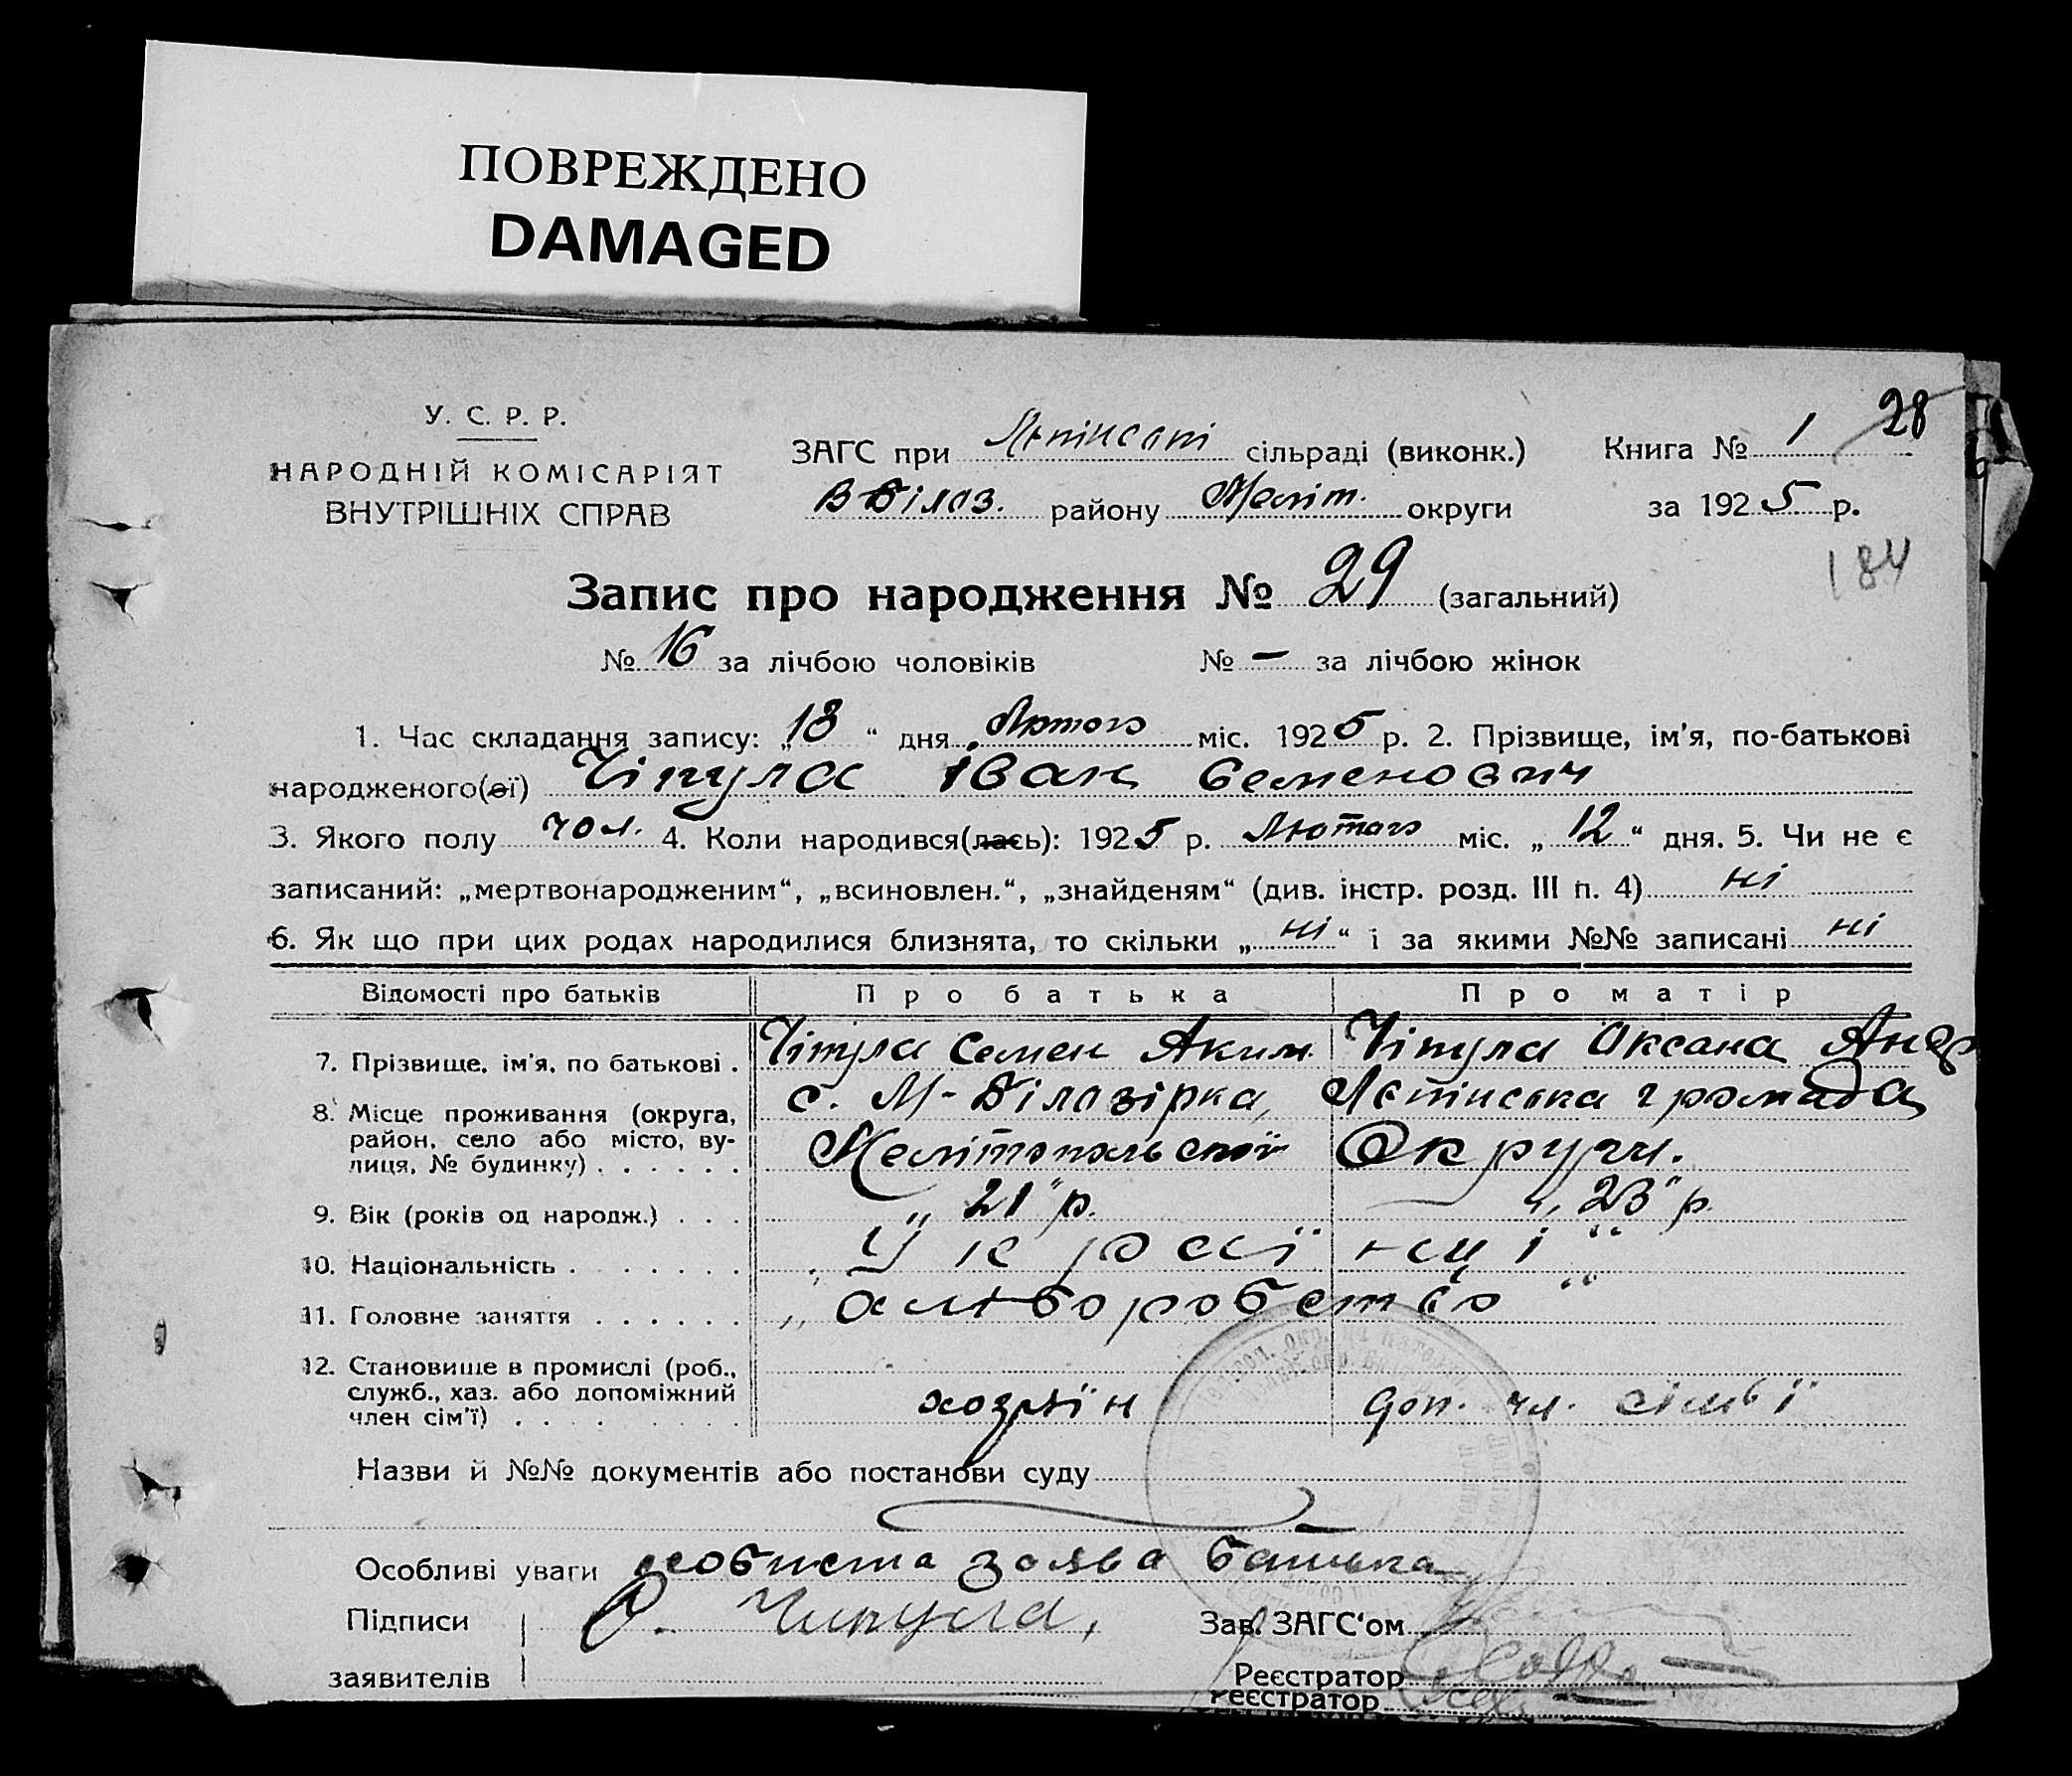 ПОВРЕЖДЕНО
DAMAGED
28
У. С. Р. Р.
НАРОДНІЙ КОМІСАРІЯТ
ВНУТРІШНІХ СПРАВ
ЗАГС при сільраді (виконк.)
В Білоз. району Меліт. округи
Книга № 1
за 1925 р.
184
Запис про народження № 29 (загальний)
№ 16 за лічбою чоловіків № — за лічбою жінок
1. Час складання запису: „18“ дня Лютого міс. 1925 р. 2. Прізвище, ім'я, по-батькові
народженого(ої) Чіпула Іван Семенович
3. Якого полу чол. 4. Коли народився(лась): 1925 р. Лютого міс. „12“ дня. 5. Чи не є
записаний: „мертвонародженим“, „всиновлен.“, „знайденям“ (див. інстр. розд. III п. 4) ні
6. Як що при цих родах народилися близнята, то скільки „ні“ і за якими №№ записані ні
Відомості про батьків Про батька Про матір
7. Прізвище, ім'я, по батькові . Чіпула Семен Аким. Чіпула Оксана Андр
8. Місце проживання (округа, район, село або місто, вулиця, № будинку) . . . . . . с. М-Білозірка, громада
Мелітопольської Округи.
9. Вік (років од народж.) . . . „21“ р. „23“ р.
10. Національність . . . . . . „Українці“
11. Головне заняття . . . . . . „хліборобство“
12. Становище в промислі (роб.,
служб., хаз. або допоміжний
член сім'ї) . . . . . хозяїн доп. чл. сімьї
Назви й №№ документів або постанови суду
Особливі уваги особиста заява батька
Підписи С. Чипула, Зав. ЗАГС'ом
заявителів Реєстратор
Реєстратор